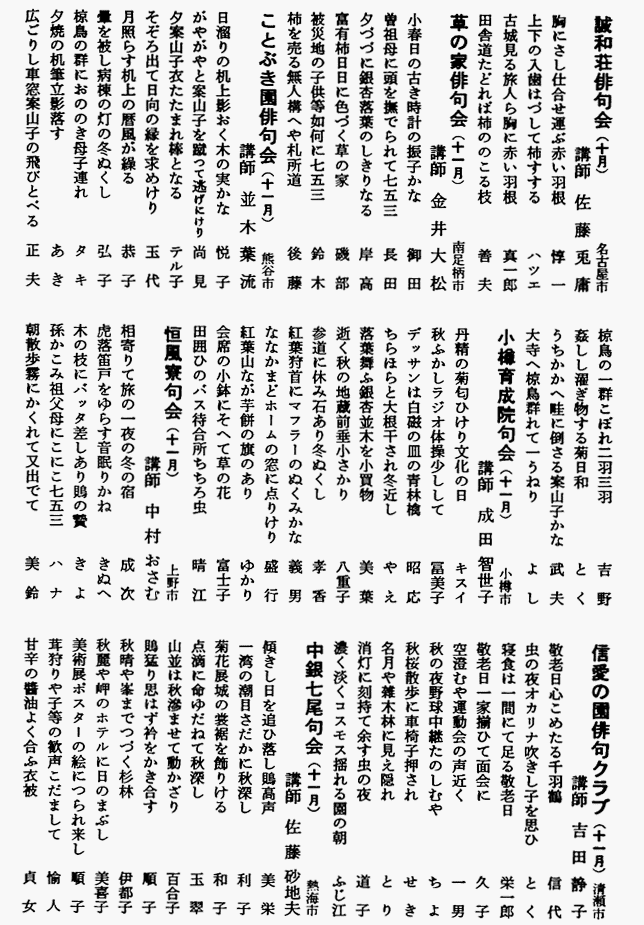 誠和荘俳句会（十月）
名古屋市
講師 佐藤兎庸
胸にさし仕合せ運ぶ赤い羽根 惇一
上下の入歯はづして柿すする ハツエ
古城見る旅人ら胸に赤い羽根 真一郎
田舎道たどれば柿ののこる枝 善夫
草の家俳句会（十一月）
南足柄市
講師 金井大松
小春日の古き時計の振子かな 御田
曽祖母に頭を撫でられて七五三 長田
夕づづに銀杏落葉のしきりなる 岸高
富有柿日日に色づく草の家 磯部
被災地の子供等如何に七五三 鈴木
柿を売る無人構へや札所道 後藤
ことぶき園俳句会（十一月）
熊谷市
講師 並木葉流
日溜りの机上影おく木の実かな 悦子
がやがやと案山子を蹴って逃げにけり 尚見
夕案山子衣たたまれ棒となる テル子
そぞろ出て日向の縁を求めけり 玉代
月照らす机上の暦風が繰る 恭子
暈を被し病棟の灯の冬ぬくし 弘子
椋鳥の群におののき母子連れ タキ
夕焼の机筆立影落す あき
広ごりし車窓案山子の飛びとべる 正夫
椋鳥の一群こぼれ二羽三羽 吉野
姦しし濯ぎ物する菊日和 とく
うちかかへ畦に倒さる案山子かな 武夫
大寺へ椋鳥群れて一うねり よし
小樽育成院句会（十一月）
小樽市
講師 成田智世子
丹精の菊匂ひけり文化の日 キスイ
秋ふかしラジオ体操少しして 冨美子
デッサンは白磁の皿の青林檎 昭応
ちらほらと大根干され冬近し やえ
落葉舞ふ銀杏並木を小買物 美葉
逝く秋の地蔵前垂小さかり 八重子
参道に休み石あり冬ぬくし 孝香
紅葉狩首にマフラーのぬくみかな 義男
ななかまどホームの窓に点りけり 盛行
紅葉山なが芋餅の旗のあり ゆかり
会席の小鉢にそへて草の花 富士子
田囲ひのバス待合所ちちろ虫 晴江
恒風寮句会（十一月）
上野市
講師 中村おさむ
相寄りて旅の一夜の冬の宿 成次
虎落笛戸をゆらす音眠りかね きぬへ
木の枝にバッタ差しあり鵙の贄 きよ
孫かこみ祖父母にこにこ七五三 ハナ
朝散歩霧にかくれて又出でて 美鈴
信愛の園俳句クラブ（十一月）
清瀬市
講師 吉田静子
敬老日心こめたる千羽鶴 信代
虫の夜オカリナ吹きし子を思ひ とく
寝食は一間にて足る敬老日 栄一郎
敬老日一家揃ひて面会に 久子
空澄むや運動会の声近く 一男
秋の夜野球中継たのしむや ちよ
秋桜散歩に車椅子押され せき
名月や雑木林に見え隠れ とり
消灯に刻持て余す虫の夜 道子
濃く淡くコスモス揺れる園の朝 ふじ江
中銀七尾句会（十一月）
熱海市
講師 佐藤砂地夫
傾きし日を追ひ落し鵙高声 美栄
一湾の潮目さだかに秋深し 利子
菊花展城の裳裾を飾りける 和子
点滴に命ゆだねて秋深し 玉翠
山並は秋滲ませて動かざり 百合子
鵙猛り思はず衿をかき合す 順子
秋晴や峯までつづく杉林 伊都子
秋麗や岬のホテルに日のまぶし 美喜子
美術展ポスターの絵につられ来し 順子
茸狩りや子等の歓声こだまして 愉人
甘辛の醬油よく合ふ衣被 貞女